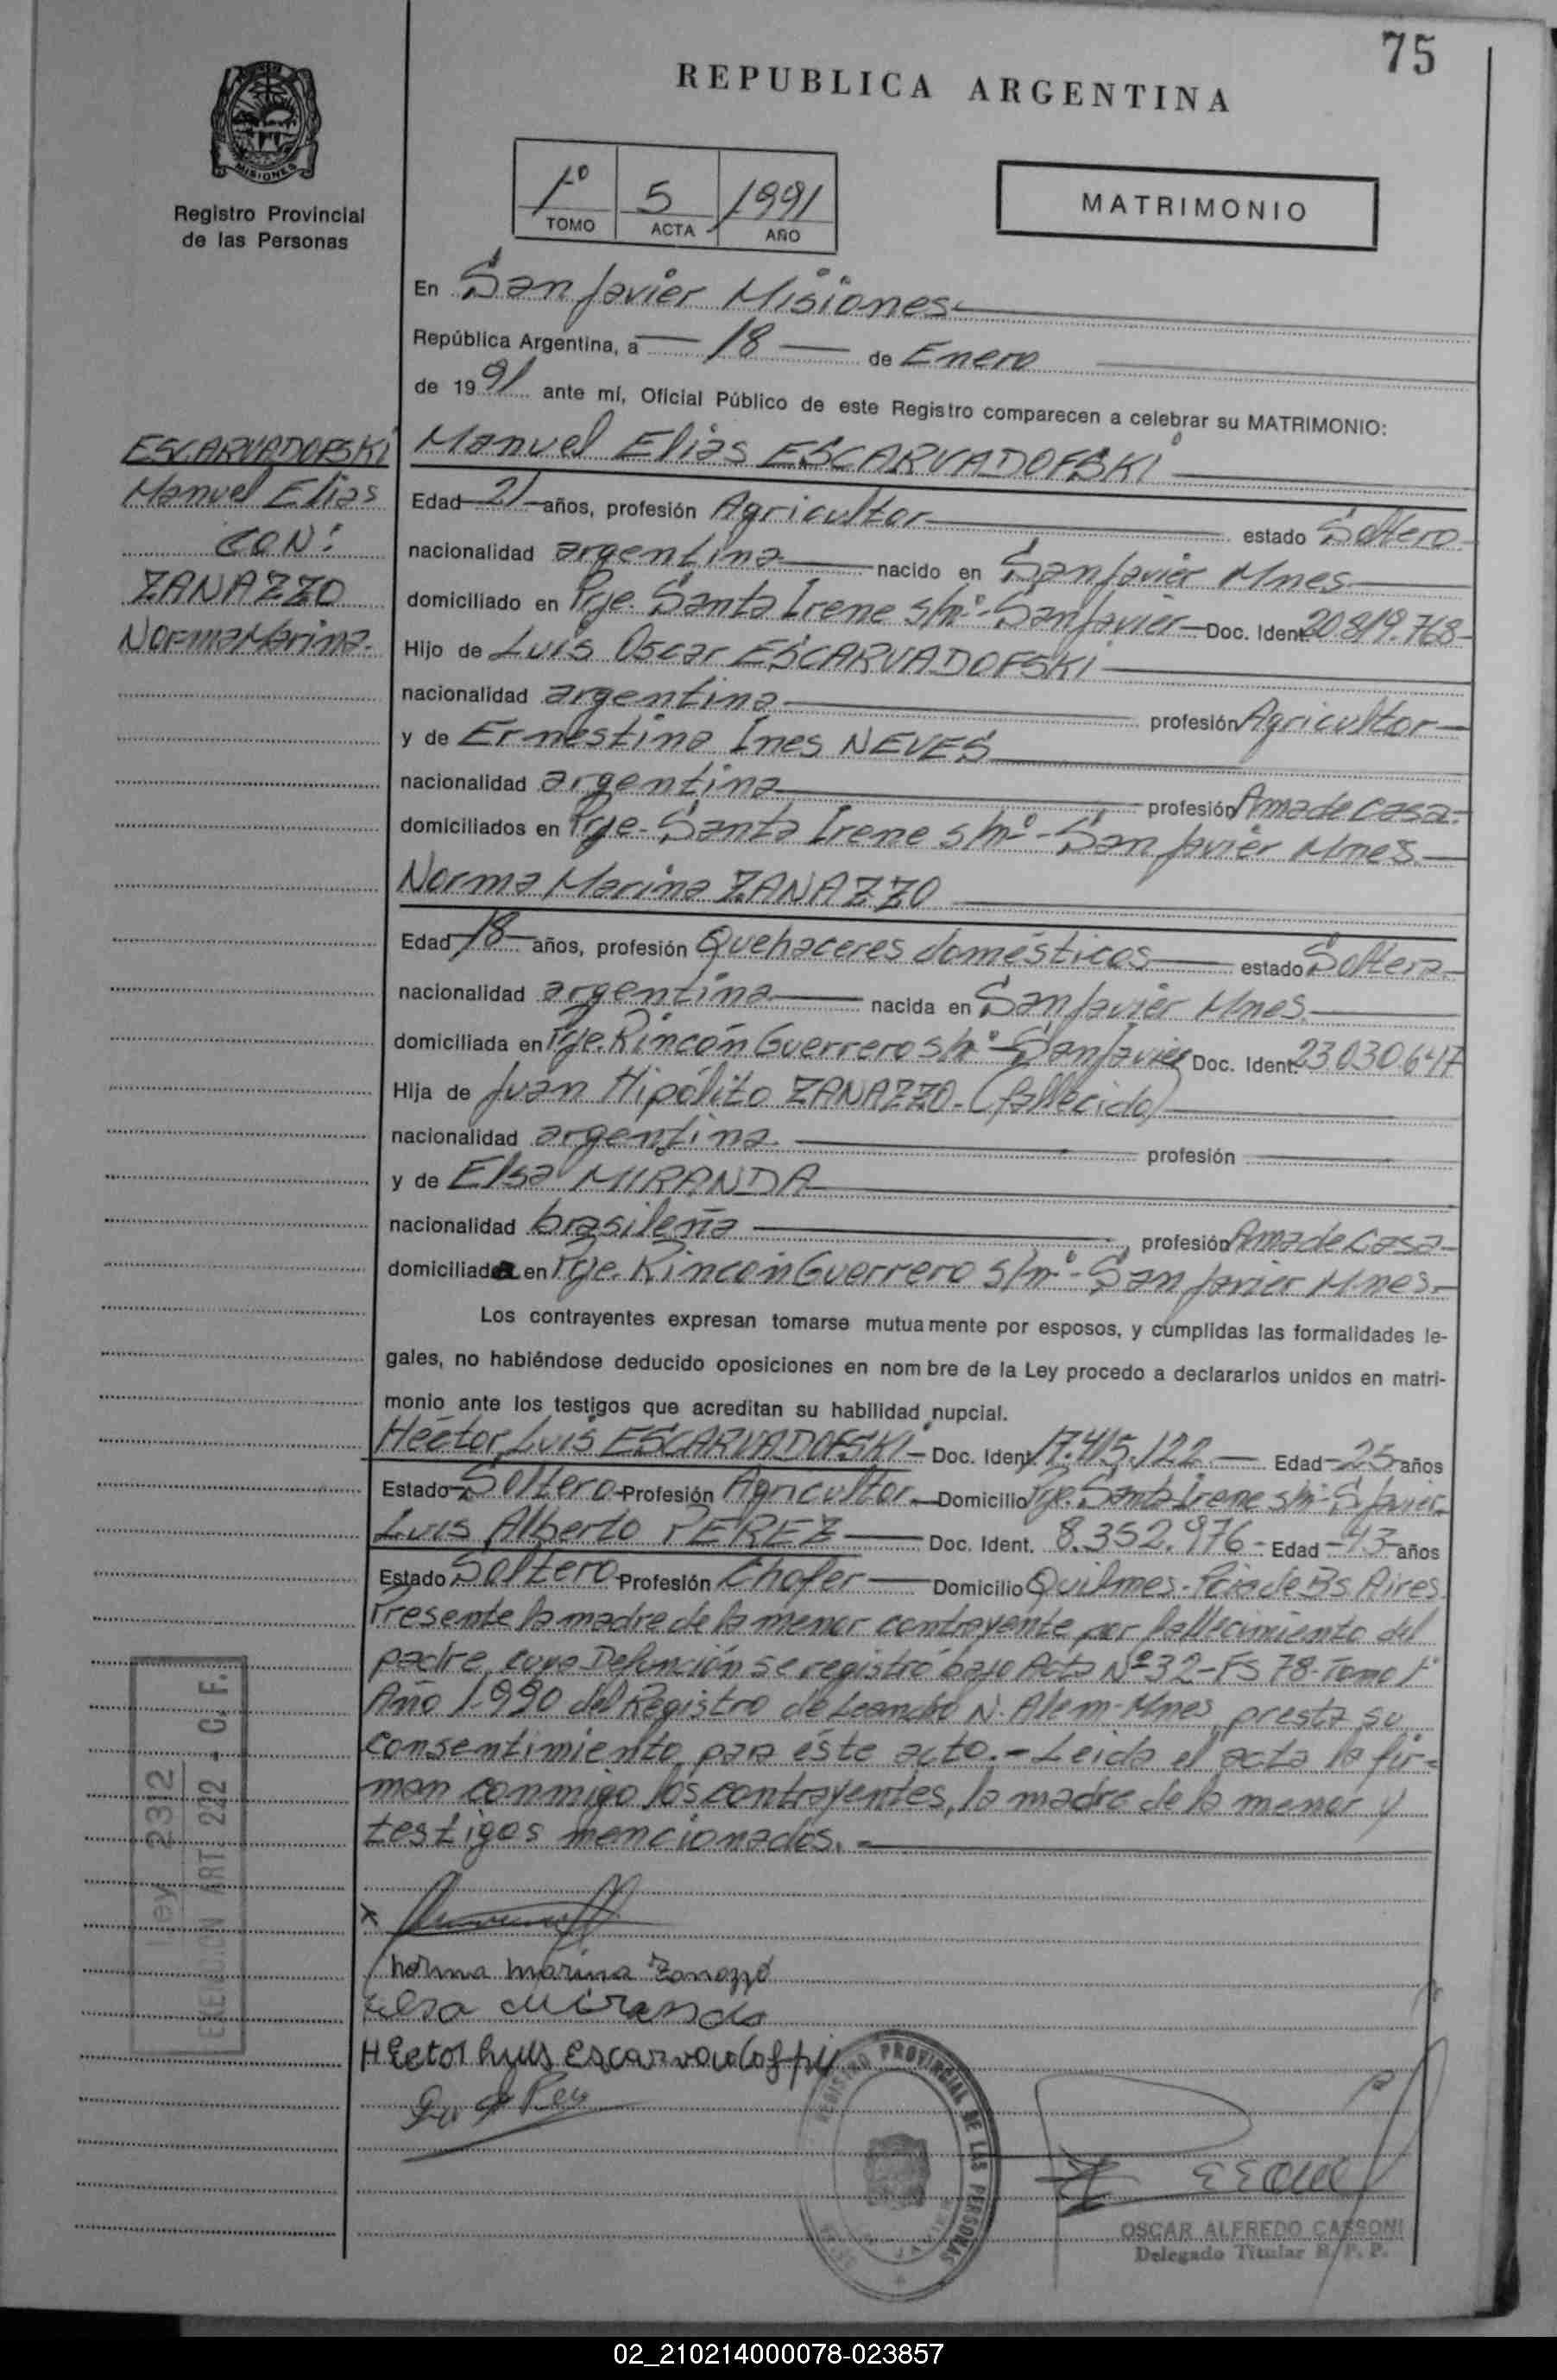 75
REPUBLICA ARGENTINA
MISIONES
Registro Provincial
de las Personas
1º 5 1991
TOMO ACTA AÑO
MATRIMONIO
En San Javier Misiones
República Argentina, a 18 de Enero
de 1991 ante mí, Oficial Público de este Registro comparecen a celebrar su MATRIMONIO:
ESCARVADOFSKI
Manuel Elias
CON:
ZANAZZO
Norma Marina.
Manuel Elias ESCARVADOFSKI
Edad 21 años, profesión Agricultor estado Soltero
nacionalidad argentina nacido en San Javier Mnes
domiciliado en Pje. Santa Irene s/nº - San Javier Doc. Ident. 20.819.768
Hijo de Luis Oscar ESCARVADOFSKI
nacionalidad argentina profesión Agricultor
y de Ernestina Ines NEVES
nacionalidad argentina profesión Ama de casa.
domiciliados en Pje. Santa Irene s/nº - San Javier Mnes.
Norma Marina ZANAZZO
Edad 18 años, profesión Quehaceres domésticos estado Soltera
nacionalidad argentina nacida en San Javier Mnes.
domiciliada en Pje. Rincón Guerrero s/nº - San Javier Doc. Ident. 23.030.647
Hija de Juan Hipólito ZANAZZO - (fallecido)
nacionalidad argentina profesión
y de Elsa MIRANDA
nacionalidad brasileña profesión Ama de Casa
domiciliada en Pje. Rincón Guerrero s/nº - San Javier Mnes.
Los contrayentes expresan tomarse mutuamente por esposos, y cumplidas las formalidades le-
gales, no habiéndose deducido oposiciones en nombre de la Ley procedo a declararlos unidos en matri-
monio ante los testigos que acreditan su habilidad nupcial.
Héctor Luis ESCARVADOFSKI - Doc. Ident. 17.415.122 Edad 25 años
Estado Soltero Profesión Agricultor Domicilio Pje. Santa Irene s/nº - S. Javier
Luis Alberto PEREZ Doc. Ident. 8.352.976 - Edad 43 años
Estado Soltero Profesión Chofer Domicilio Quilmes - Pcia de Bs Aires
Presente la madre de la menor contrayente por fallecimiento del
padre, cuya Defunción se registró bajo Acta Nº 32 - Fs 78 - Tomo 1º
Año 1.990 del Registro de Leandro N. Alem - Mnes, presta su
consentimiento para éste acto. - Leida el acta la fir-
man conmigo los contrayentes, la madre de la menor y
testigos mencionados. -
Ley 2312
EXENCION ART. 222 - C. F.
Norma Marina Zanazzo
Elsa Miranda
Hector Luis Escarvadofski
REGISTRO PROVINCIAL DE LAS PERSONAS
OSCAR ALFREDO CASSONI
Delegado Titular R. P. P.
02_210214000078-023857